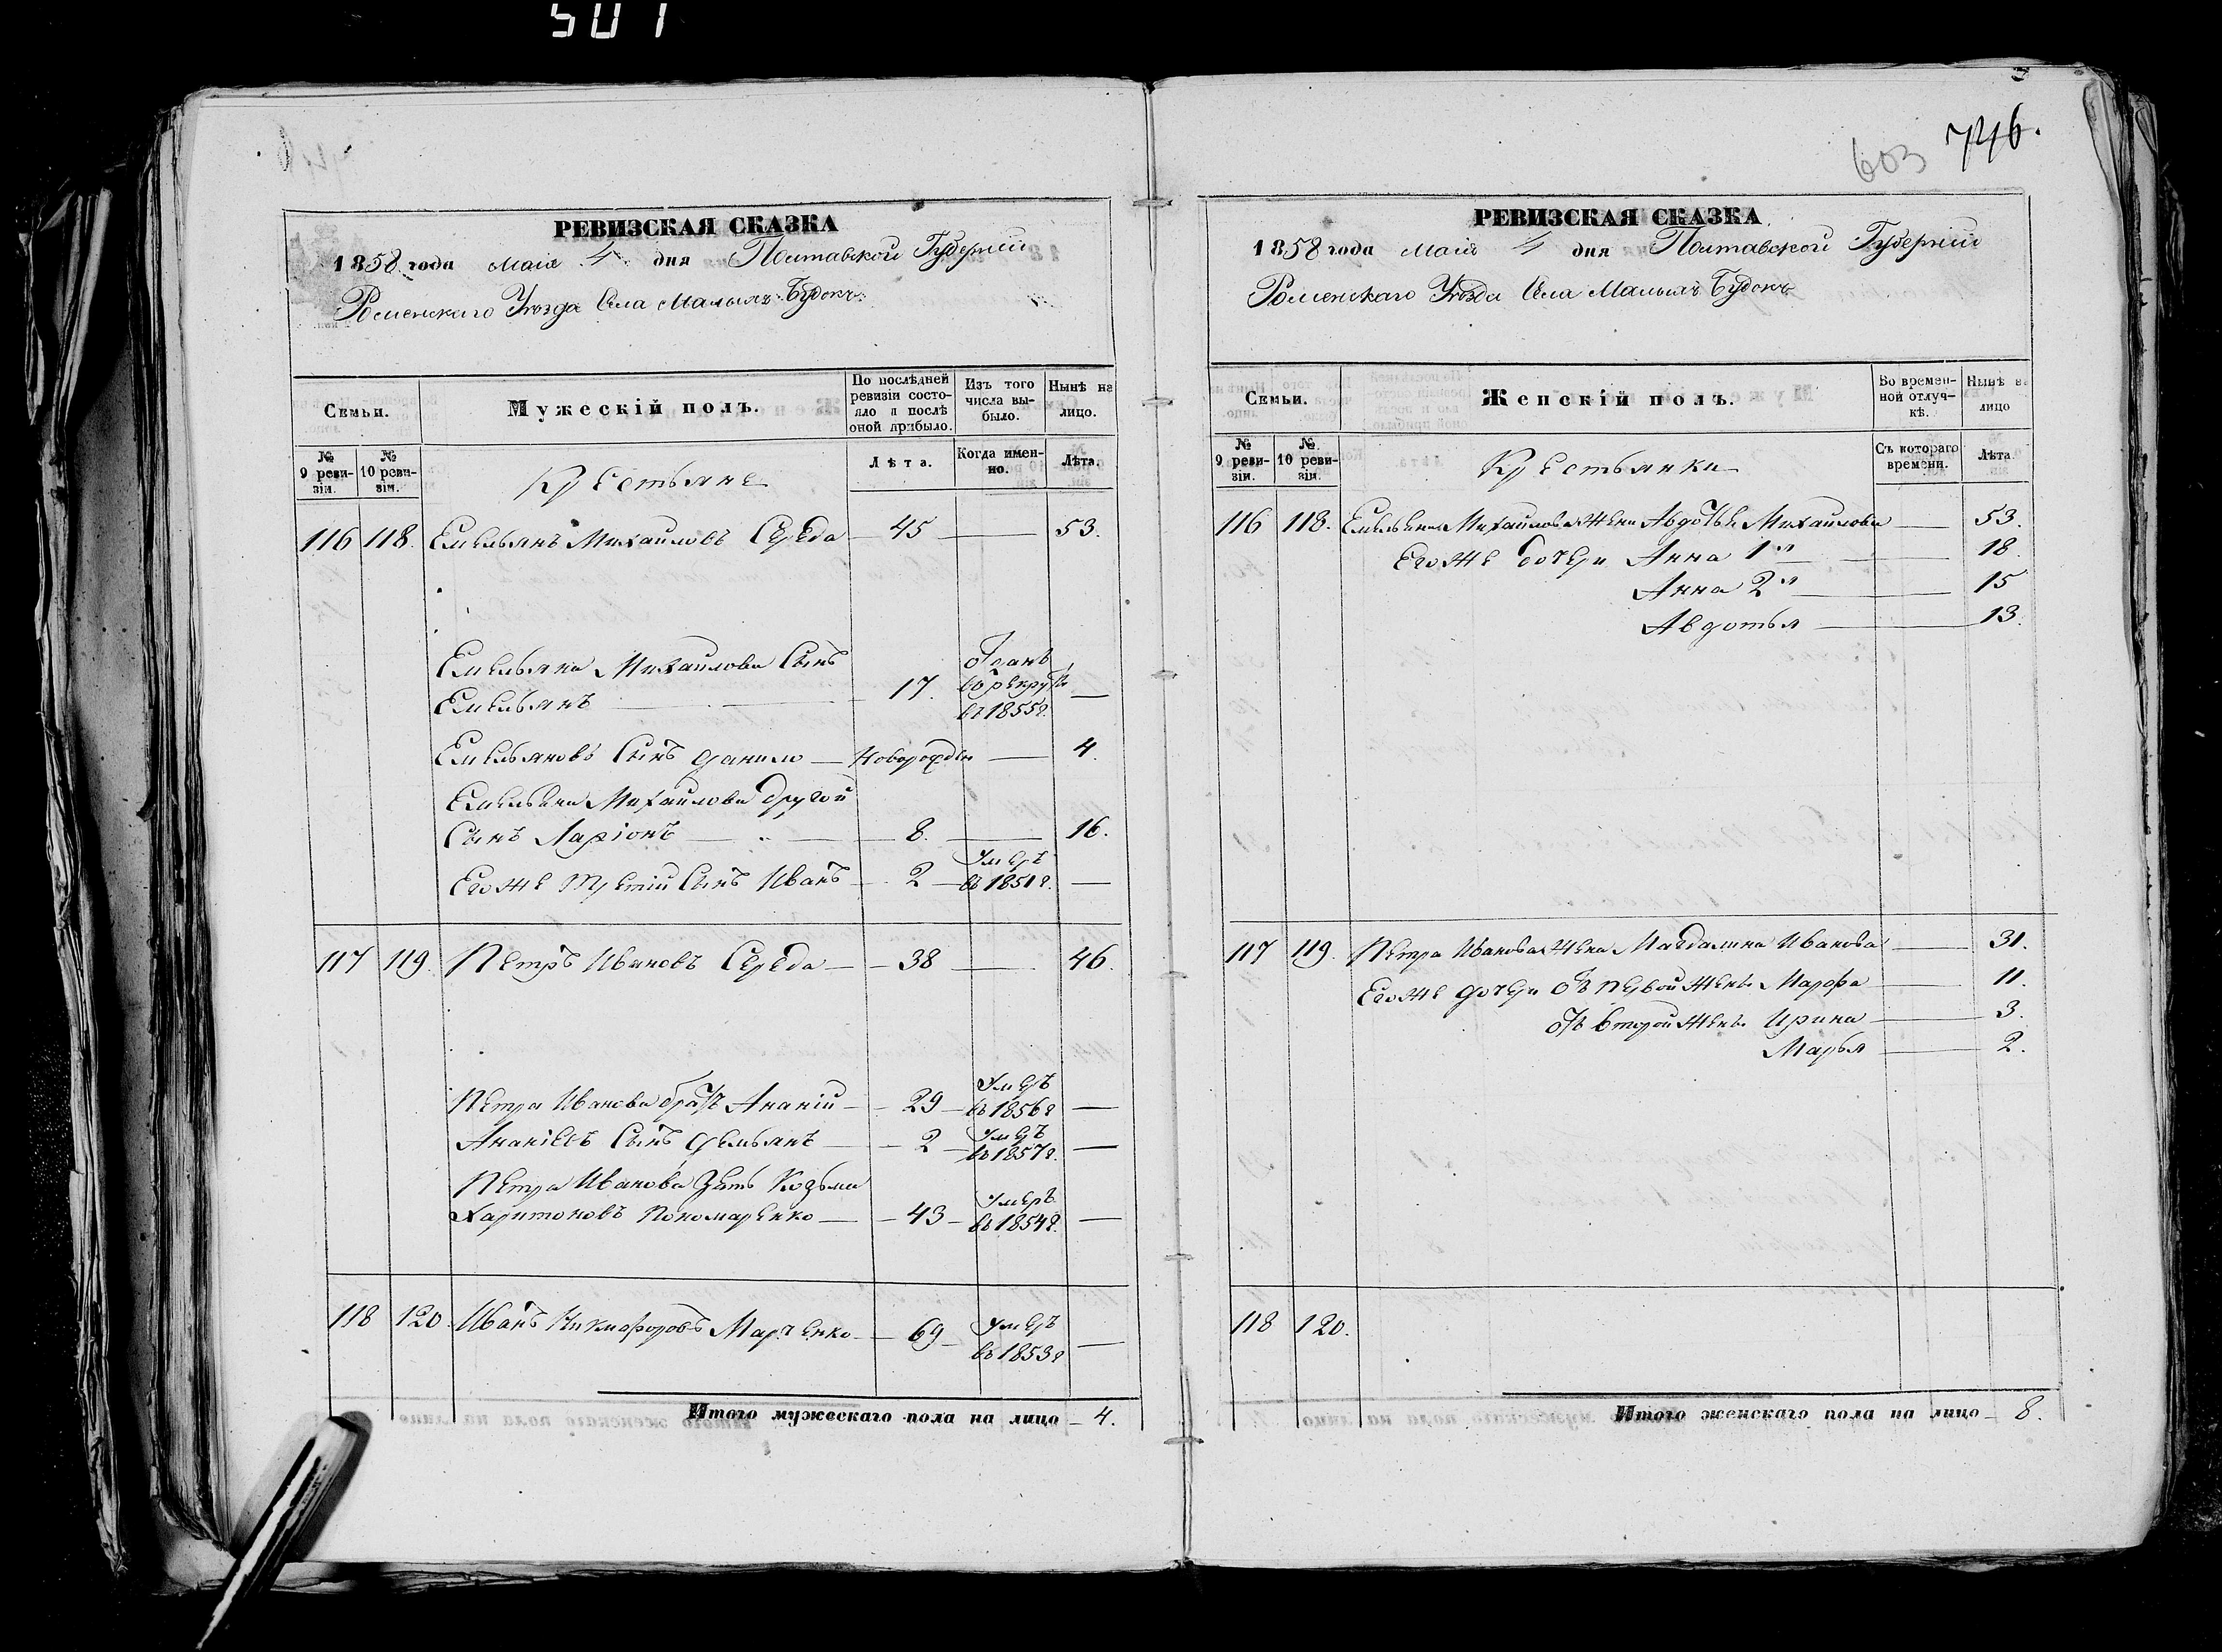 501
603 746.
РЕВИЗСКАЯ СКАЗКА
1858 года Маія 4 дня Полтавской Губерніи
Роменскаго Уѣзда Села Малыхъ Будокъ
Семьи.
Мужескій полъ.
По послѣдней ревизіи состояло и послѣ оной прибыло.
Изъ того числа выбыло.
Нынѣ на лицо.
№ 9 ревизіи.
№ 10 ревизіи.
Крестьяне
Лѣта.
Когда именно.
Лѣта.
116 118. Емельянъ Михайловъ Середа 45 — 53.
Емельяна Михайлова Сынъ
Емельянъ — 17. Отданъ въ рекруты въ 1855г. —
Емельяновъ Сынъ Данило — Новорожден — 4.
Емельяна Михайлова другой
Сынъ Ларіонъ — 8. — 16.
Егоже третій Сынъ Иванъ — 2 — Умеръ въ 1851г. —
117 119. Петръ Ивановъ Середа — 38 — 46.
Петра Иванова братъ Ананій — 29 — Умеръ въ 1856г —
Ананіевъ Сынъ Демьянъ — 2 — Умеръ въ 1857г. —
Петра Иванова Зять Козьма
Харитоновъ Пономаренко — 43 — Умеръ въ 1854г. —
118 120. Иванъ Никифоровъ Марченко — 69 — Умеръ въ 1853г —
Итого мужескаго пола на лицо — 4.
РЕВИЗСКАЯ СКАЗКА
1858 года Маія 4 дня Полтавской Губерніи
Роменскаго Уѣзда Села Малыхъ Будокъ
Семьи.
Женскій полъ.
Во временной отлучкѣ.
Нынѣ на лицо
№ 9 ревизіи.
№ 10 ревизіи.
Крестьянки
Съ котораго времени.
Лѣта.
116 118. Емельяна Михайлова Жена Авдотья Михайлова — 53.
Егоже дочери Анна 1я — 18.
Анна 2я — 15
Авдотья — 13.
117 119. Петра Иванова Жена Магдалина Иванова — 31.
Егоже дочери отъ первой жены Марфа — 11.
отъ второй жены Ирина — 3.
Марья — 2.
118 120.
Итого женскаго пола на лицо — 8.